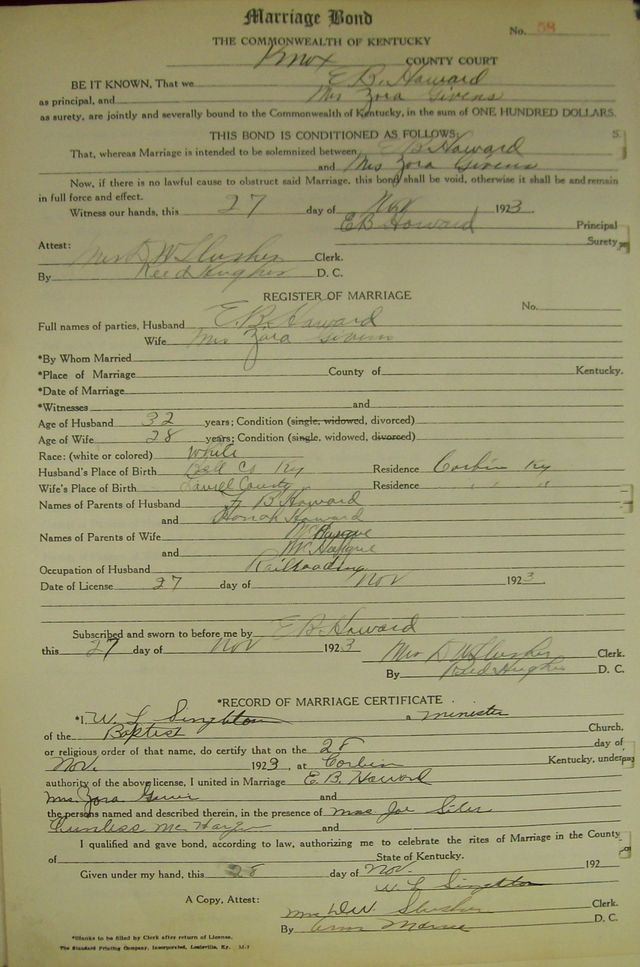 Marriage Bond
No. 58
THE COMMONWEALTH OF KENTUCKY
Knox COUNTY COURT
BE IT KNOWN, That we E B. Howard
as principal, and Mrs Zora Givens
as surety, are jointly and severally bound to the Commonwealth of Kentucky, in the sum of ONE HUNDRED DOLLARS.
THIS BOND IS CONDITIONED AS FOLLOWS:
That, whereas Marriage is intended to be solemnized between E B Howard
and Mrs Zora Givens
Now, if there is no lawful cause to obstruct said Marriage, this bond shall be void, otherwise it shall be and remain
in full force and effect.
Witness our hands, this 27 day of Nov 1923
E B Howard Principal
Surety
Attest:
Mrs D W Slusher Clerk.
By Reed Hughes D. C.
REGISTER OF MARRIAGE
No.
Full names of parties, Husband E. B. Howard
Wife Mrs Zora Givens
*By Whom Married
*Place of Marriage County of Kentucky.
*Date of Marriage
*Witnesses and
Age of Husband 32 years; Condition (single, widowed, divorced)
Age of Wife 28 years; Condition (single, widowed, divorced)
Race: (white or colored) White
Husband's Place of Birth Bell Co Ky Residence Corbin Ky
Wife's Place of Birth Laurell County Residence " " "
Names of Parents of Husband B Howard
and Howard
Names of Parents of Wife
and
Occupation of Husband Railroading
Date of License 27 day of Nov 1923
Subscribed and sworn to before me by E B. Howard
this 27 day of Nov 1923
Mrs D W Slusher Clerk.
By Reed Hughes D. C.
*RECORD OF MARRIAGE CERTIFICATE
*I, W. L Singleton a minister
of the Baptist Church,
or religious order of that name, do certify that on the 28 day of
Nov. 1923, at Corbin Kentucky, under
authority of the above license, I united in Marriage E. B. Howard
Mrs Zora and
the persons named and described therein, in the presence of Joe Siler
and
I qualified and gave bond, according to law, authorizing me to celebrate the rites of Marriage in the County
of State of Kentucky.
Given under my hand, this 28 day of Nov. 192
W. L Singleton
A Copy, Attest:
Mrs D.W. Slusher Clerk.
By D. C.
*Blanks to be filled by Clerk after return of License.
The Standard Printing Company, Incorporated, Louisville, Ky. 14-1